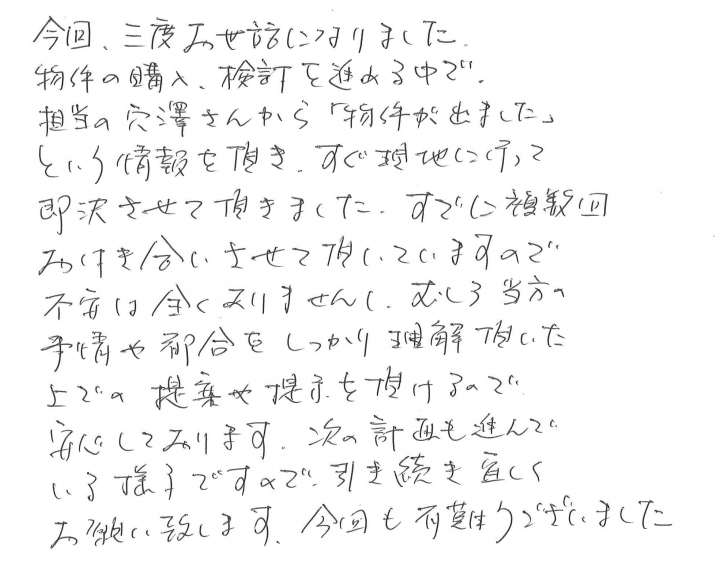 今回、三度お世話になりました。
物件の購入、検討を進める中で、
担当の穴澤さんから「物件が出ました」
という情報を頂き、すぐ現地に行って
即決させて頂きました。すでに複数回
お付き合いさせて頂いていますので
不安は全くありませんし、むしろ当方の
事情や都合をしっかり理解頂いた
上での提案や提示を頂けるので
安心しております。次の計画も進んで
いる様子ですので、引き続き宜しく
お願い致します。今回も有難うございました